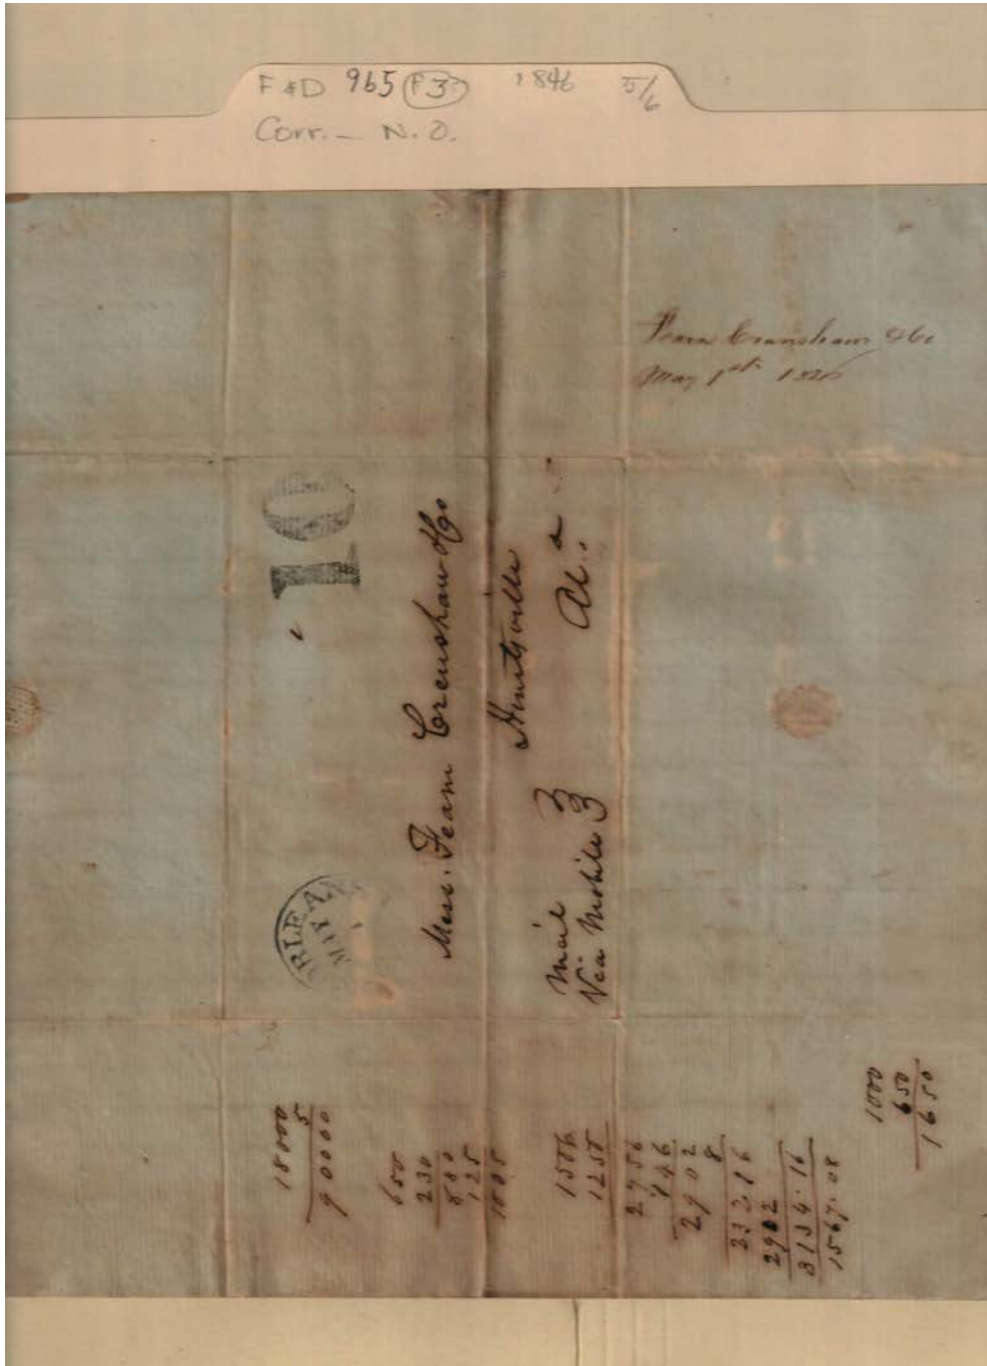 F&D 965 (F3) 1846 5/6
Corr. — N.O.
Fearn Crenshaw & Co
May 1st 1846
10
Mess. Fearn Crenshaw & Co
Huntsville
Ala
Mail
Via Mobile
ORLEAN
MAY
1
18000
5
90000
650
230
880
125
1005
1506
1250
2756
146
2902
8
232.16
2902
3134.16
1567.08
1000
650
1650